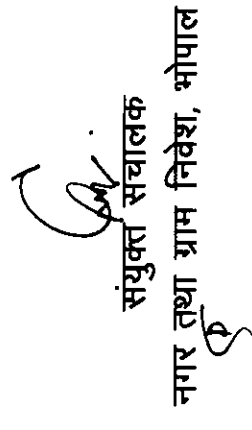 संयुक्त सचालक
नगर तथा ग्राम निवेश, भोपाल